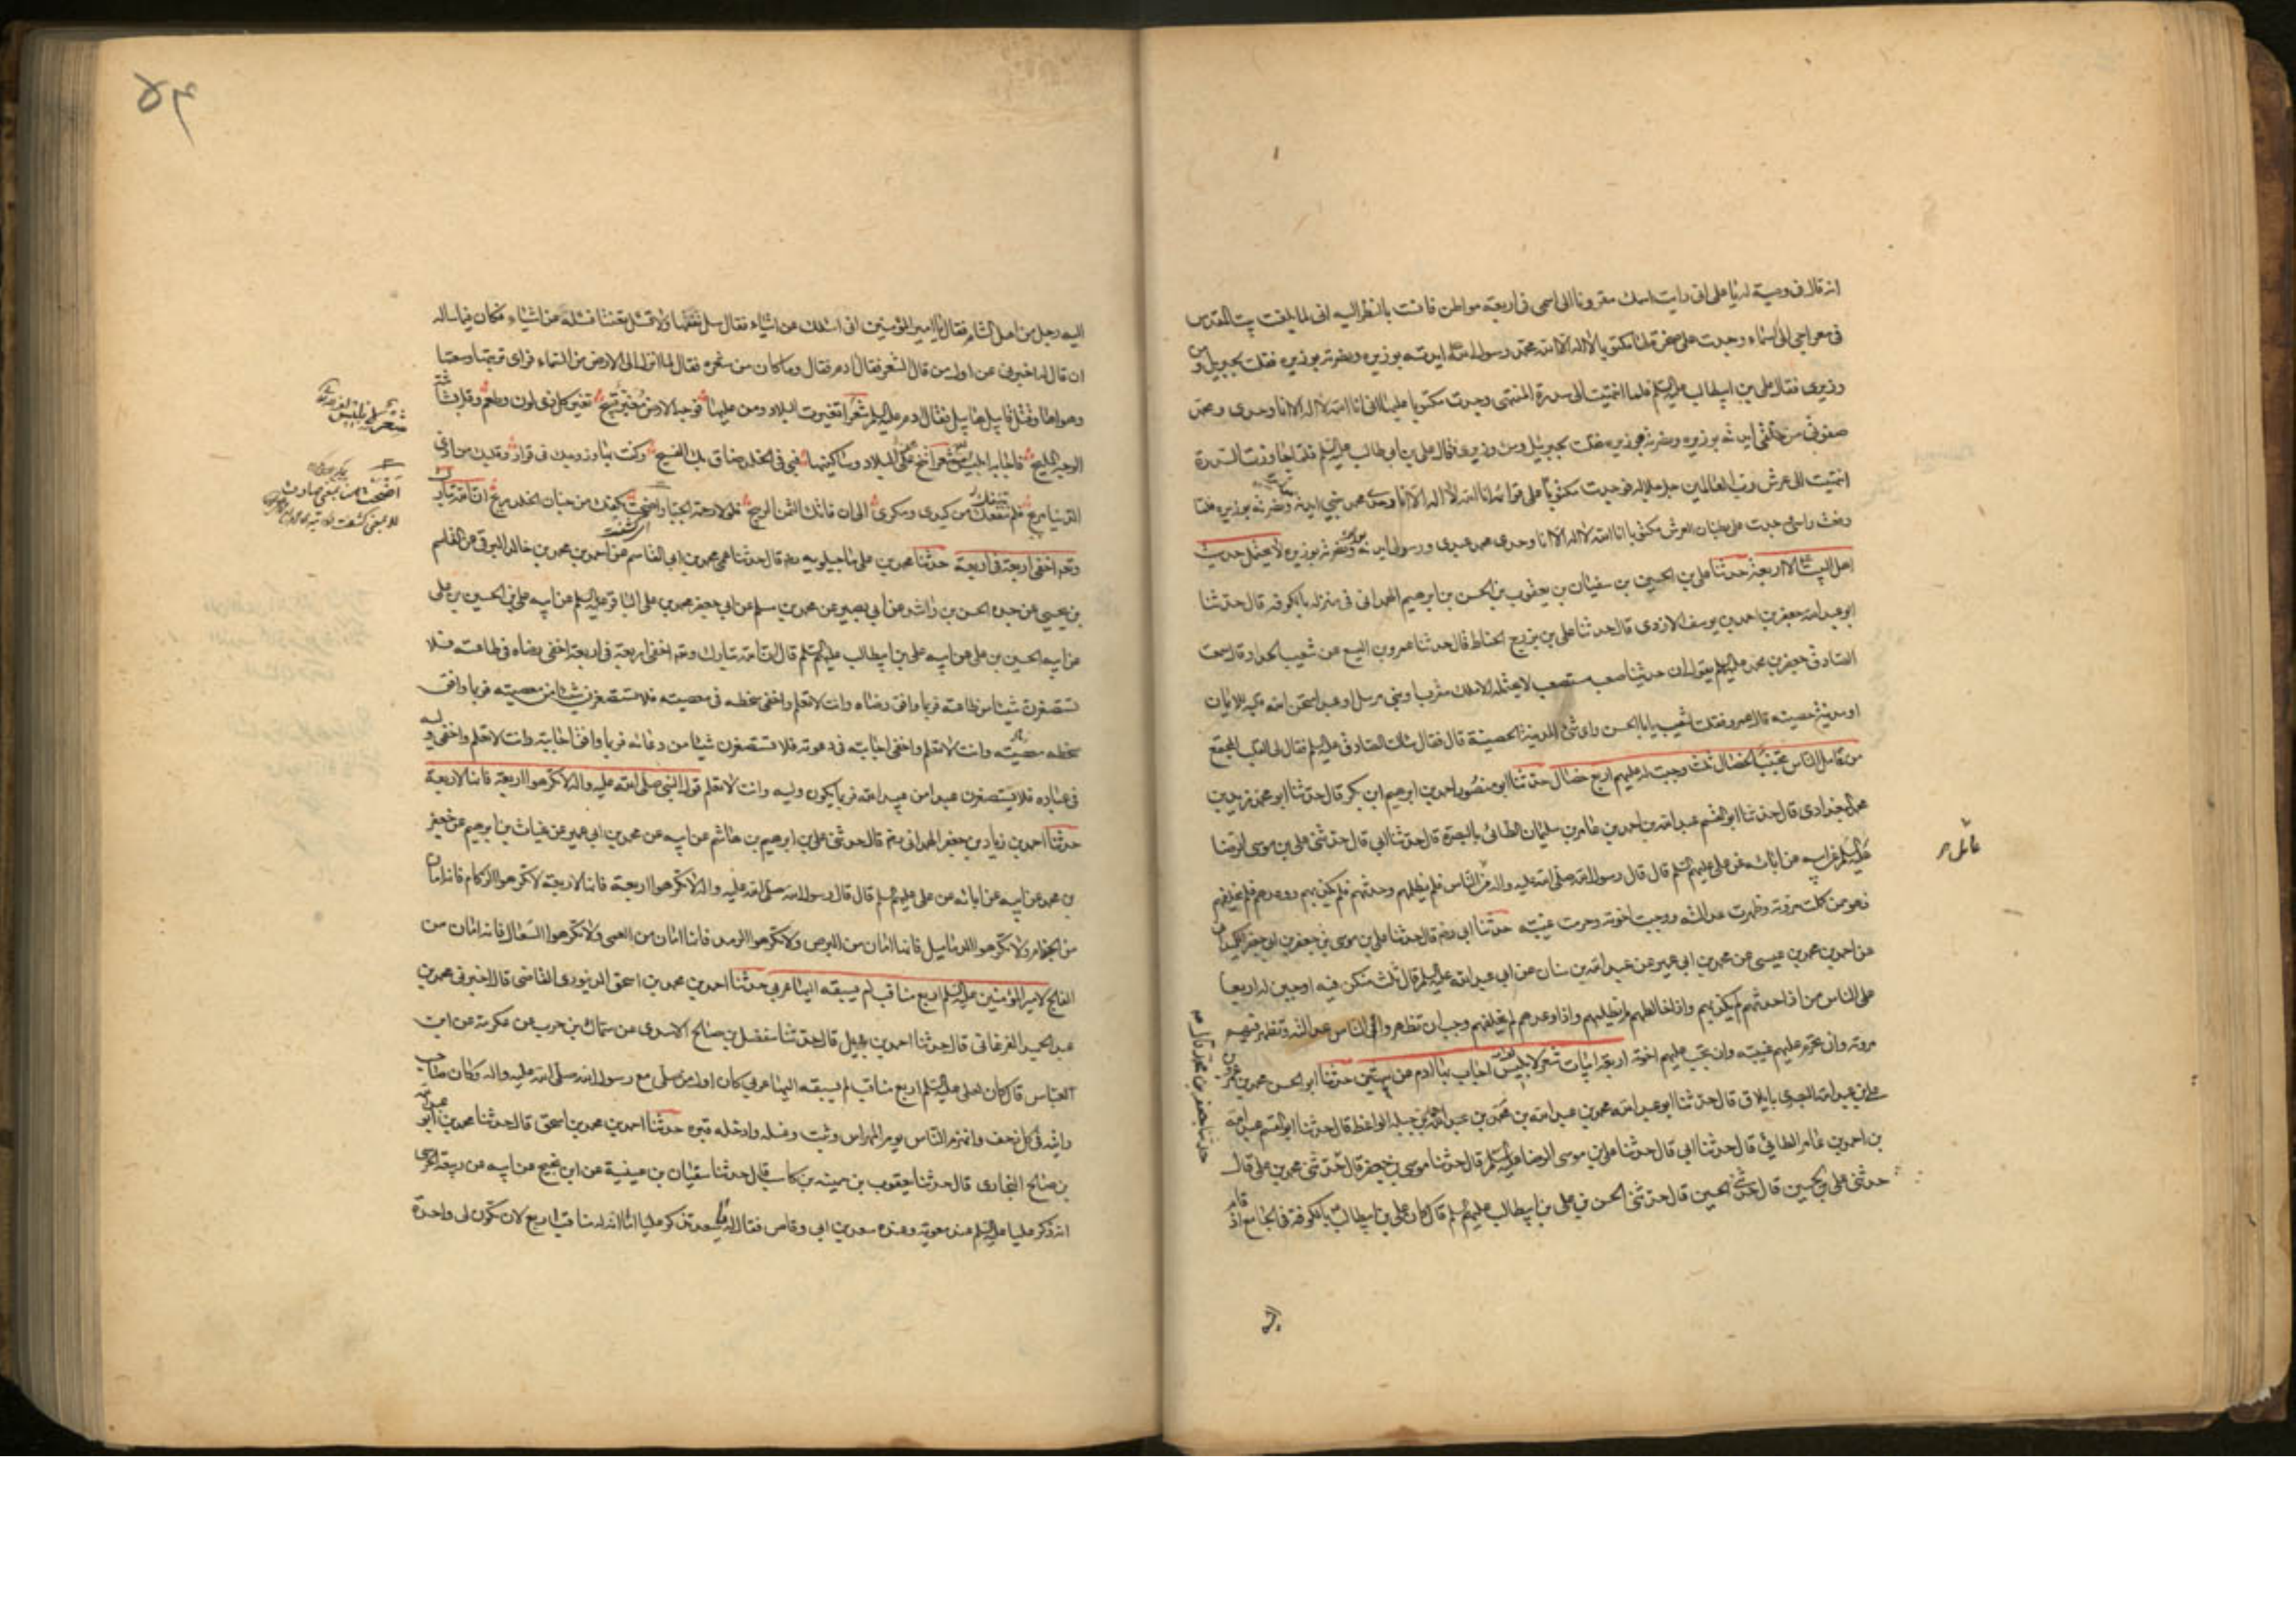 انه قال فى وصية له يا على انى رايت اسمك مقرونا الى اسمى فى اربعة مواطن فانست بالنظر اليه انى لما بلغت بيت المقدس
فى معراجى الى السماء وجدت على صخرتها مكتوبا لا اله الا الله محمد رسول الله ايدته بوزيره ونصرته بوزيره فقلت لجبرئيل ومن
وزيرى فقال على بن ابيطالب عليه السلم فلما انتهيت الى سدرة المنتهى وجدت مكتوبا عليها انى انا الله لا اله الا انا وحدى ومحمد
صفوتى من خلقى ايدته بوزيره ونصرته بوزيره فقلت لجبرئيل ومن وزيرى فقال على بن ابى طالب عليه السلم فلما جاوزت السدرة
انتهيت الى عرش رب العالمين جل جلاله فوجدت مكتوبا على قوائمه انا الله لا اله الا انا وحدى محمد حبيبى ايدته بوزيره ونصرته بوزيره فلما
رفعت راسى وجدت على بطنان العرش مكتوبا انا الله لا اله الا انا وحدى محمد عبدى ورسولى ايدته بوزيره ونصرته بوزيره لا يحتمل حديث
اهل البيت الا اربعة حدثنا على بن الحسين بن سفيان بن يعقوب بن الحسن بن ابرهيم الهمدانى فى منزله بالكوفه قال حدثنا
ابو عبد الله جعفر بن احمد بن يوسف الازدى قال حدثنا على بن بزرج الحناط قال حدثنا عمرو بن اليسع عن شعيب الحداد قال سمعت
الصادق جعفر بن محمد عليهما يقول ان حديثنا صعب مستصعب لا يحتمله الا ملك مقرب او نبى مرسل او عبد امتحن الله قلبه للايمان
او مدينة حصينة قال عمرو فقلت لشعيب يا ابا الحسن واى شئ المدينة الحصينة قال فقال سالت الصادق عليه السلم فقال لى القلب المجتمع
من عامل الناس مجتنبا لخصال ثلث وجبت له عليهم اربع خصال حدثنا ابو منصور احمد بن ابرهيم ابن بكر قال حدثنا ابو محمد زيد بن
محمد البغدادى قال حدثنا ابو القسم عبد الله بن احمد بن عامر بن سليمان الطائى بالبصرة قال حدثنا ابى قال حدثنى على بن موسى الرضا
عليه السلم عن ابيه عن ابائه عن على عليهم السلم قال قال رسول الله صلى الله عليه واله من عامل الناس فلم يظلمهم وحدثهم فلم يكذبهم ووعدهم فلم يخلفهم
فهو من كملت مروته وظهرت عدالته ووجبت اخوته وحرمت غيبته حدثنا ابى رضه قال حدثنا على بن موسى بن جعفر بن ابى جعفر الكمندانى
عن احمد بن محمد بن عيسى عن محمد بن ابى عمير عن عبد الله بن سنان عن ابى عبد الله عليه السلم قال ثلث من كن فيه اوجبن له اربعا
على الناس من اذا حدثهم لم يكذبهم واذا خالطهم لم يظلمهم واذا وعدهم لم يخلفهم وجب ان تظهر فى الناس عدالته وتظهر فيهم
مروته وان تحرم عليهم غيبته وان تجب عليهم اخوته اربعة ابيات شعر لابليس اجاب بها ادم عن بيتين حدثنا ابو الحسن محمد بن عمرو بن
على بن عبد الله البصرى بايلاق قال حدثنا ابو عبد الله محمد بن عبد الله بن محمد بن عبد الله احمد بن جبله الواعظ قال حدثنا ابو القسم عبد الله
بن احمد بن عامر الطائى قال حدثنا ابى قال حدثنا على بن موسى الرضا عليه السلم قال حدثنا موسى بن جعفر قال حدثنى محمد بن على قال
حدثنى على بن الحسين قال حدثنى الحسين قال حدثنى الحسن فى على بن ابيطالب عليهم السلم قال كان على بن ابيطالب بالكوفة فى الجامع اذ قام
حدثنا جعفر بن محمد قال
اليه
٥٤
اليه رجل من اهل الشام فقال يا امير المؤمنين انى اسئلك عن اشياء فقال سل تفقها ولا تسئل تعنتا فسئله عن اشياء فكان فيما ساله
ان قال له اخبرنى عن اول من قال الشعر فقال ادم فقال وما كان من شعره فقال لما انزل الى الارض من السماء فراى تربتها وسعتها
وهواها وقتل قابيل هابيل فقال ادم عليه السلم شعرا تغيرت البلاد ومن عليها فوجه الارض مغبر قبيح تغير كل ذى لون وطعم وقل بشاشة
الوجه المليح فاجابه ابليس شعرا تنح عن البلاد وساكنيها ففى الخلد ضاق بك الفسيح وكنت بها وزوجك فى قرار وقلبك من اذى
الدنيا مريح فلم تنفك من كيدى ومكرى الى ان فاتك الثمن الربيح فلولا رحمة الجبار اضحت بكفك من جنان الخلد ريح ان الله تبارك
وتعالى اخفى اربعة فى اربعة حدثنا محمد بن على ماجيلويه رضه قال حدثنا عمى محمد بن ابى القاسم عن احمد بن محمد بن خالد البرقى عن القسم
بن يحيى عن جده الحسن بن راشد عن ابى بصير عن محمد بن مسلم عن ابى جعفر محمد بن على الباقر عليه السلم عن ابيه على بن الحسين بن على
عن ابيه الحسين بن على عن ابيه على بن ابيطالب عليهم السلم قال ان الله تبارك وتعالى اخفى اربعة فى اربعة اخفى رضاه فى طاعته فلا
تستصغرن شيئا من طاعته فربما وافق رضاه وانت لا تعلم واخفى سخطه فى معصيته فلا تستصغرن شيئا من معصيته فربما وافق
سخطه معصيته وانت لا تعلم واخفى اجابته فى دعوته فلا تستصغرن شيئا من دعائه فربما وافق اجابته وانت لا تعلم واخفى وليه
فى عباده فلا يستصغرن عبدا من عبيد الله فربما يكون وليه وانت لا تعلم قول النبى صلى الله عليه واله لا تكرهوا اربعة فانها لاربعة
حدثنا احمد بن زياد بن جعفر الهمدانى رضه قال حدثنى على بن ابرهيم بن هاشم عن ابيه عن محمد بن ابى عمير عن غياث بن ابرهيم عن جعفر
بن محمد عن ابيه عن ابائه عن على عليهم السلم قال قال رسول الله صلى الله عليه واله لا تكرهوا اربعة فانها لاربعة لا تكرهوا الزكام فانه امان
من الجذام ولا تكرهوا الدماميل فانها امان من البرص ولا تكرهوا الرمد فانه امان من العمى ولا تكرهوا السعال فانه امان من
الفالج لامير المؤمنين عليه السلم اربع مناقب لم يسبقه اليها عربى حدثنا احمد بن محمد بن اسحق الدينورى القاضى قال اخبرنى محمد بن
عبد الحميد الفرغانى قال حدثنا احمد بن بديل قال حدثنا مفضل بن صالح الاسدى عن سماك بن حرب عن عكرمة عن ابن
العباس قال كان لعلى عليه السلم اربع مناقب لم يسبقه اليها عربى كان اول من صلى مع رسول الله صلى الله عليه واله وكان صاحب
رايته فى كل زحف وانهزم الناس يوم المهراس وثبت وغسله وادخله قبره حدثنا احمد بن محمد بن اسحق قال حدثنا محمد بن ابو
بن صالح البخارى قال حدثنا يعقوب بن حميد بن كاسب قال حدثنا سفيان بن عيينة عن ابن نجيح عن ابيه عن ربيعة الجرشى
انه ذكر عليا عليه السلم عند معوية وعنده سعد بن ابى وقاص فقال له سعد تذكر عليا اما ان له مناقب اربع لان تكون لى واحدة